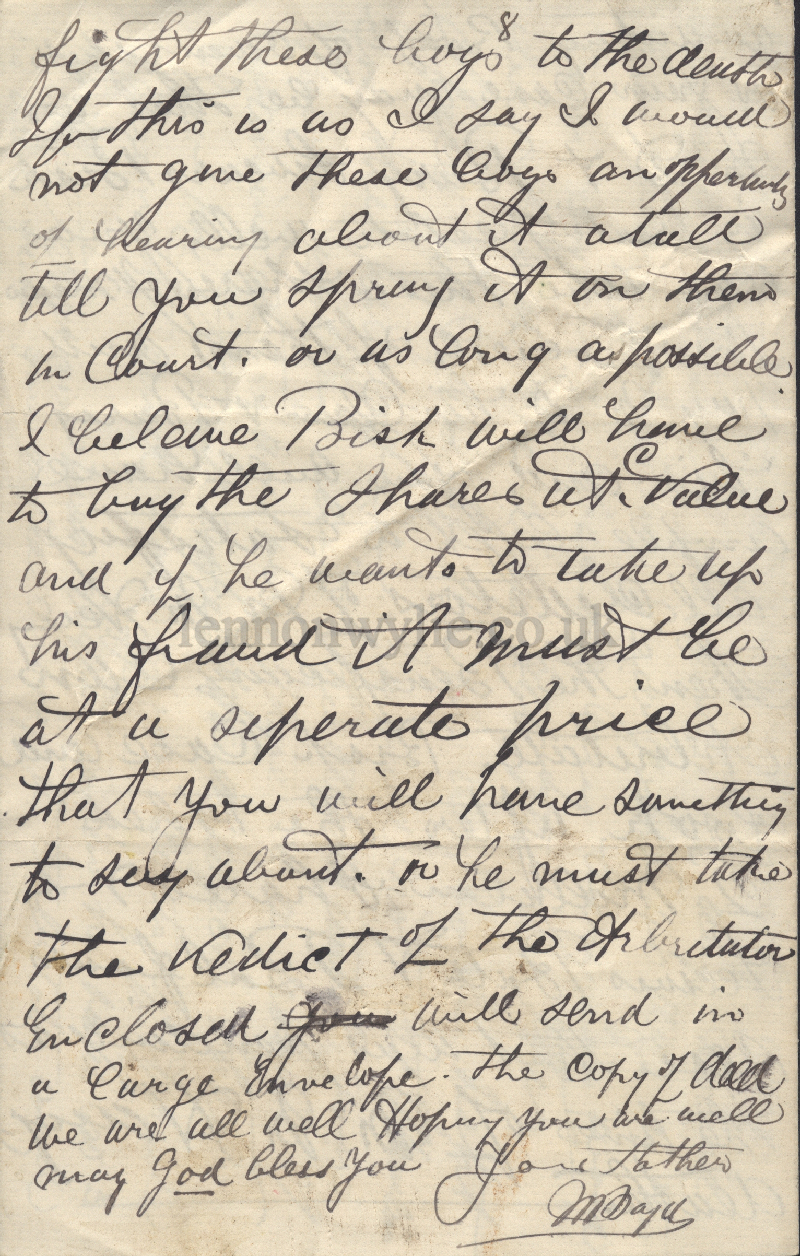 8
fight these boys to the death
If this is as I say I would
not give these boys an oppertunity
of hearing about it atall
till you spring it on them
in Court. or as long as possible
I beleave Bish will have
to buy the shares at Value
and if he wants to take up
his fraud it must be
at a seperate price
that you will have something
to say about. or he must take
the Vedict of the Arbretator
Enclosed you will send in
a large Envelope. the copy of deed
We are all well Hoping you are well
may God bless you Your Father
lennonwylie.co.uk